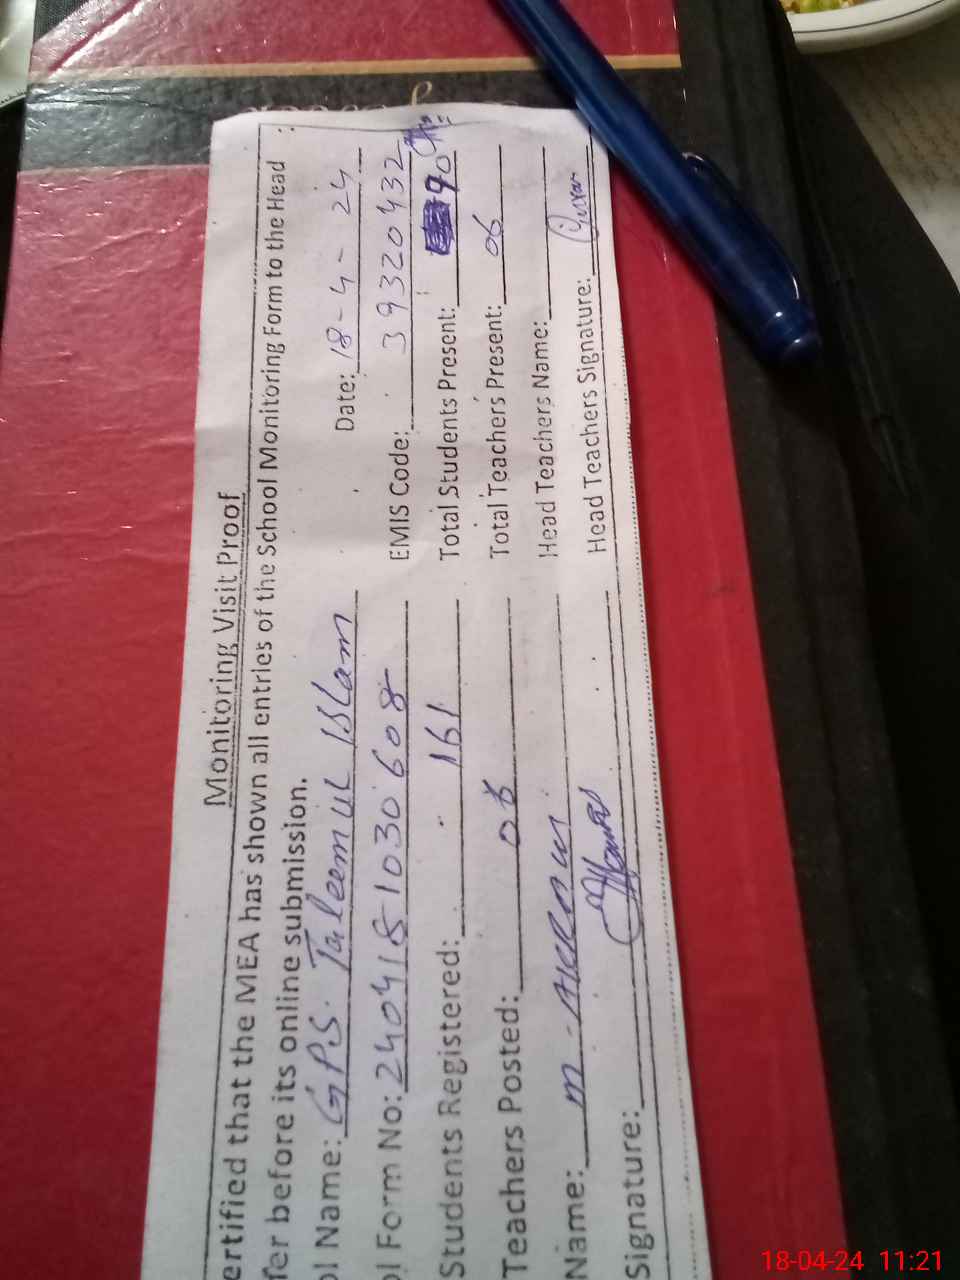 Monitoring Visit Proof
ertified that the MEA has shown all entries of the School Monitoring Form to the Head
er before its online submission.
ol Name: GPS. Taleem ul Islam Date: 18-4-24
ol Form No: 2404151030608 EMIS Code: 39320432
Students Registered: 161 Total Students Present: 90
Teachers Posted: 06 Total Teachers Present: 06
Name: m-Akram Head Teachers Name:
Signature: Head Teachers Signature:
18-04-24 11:21